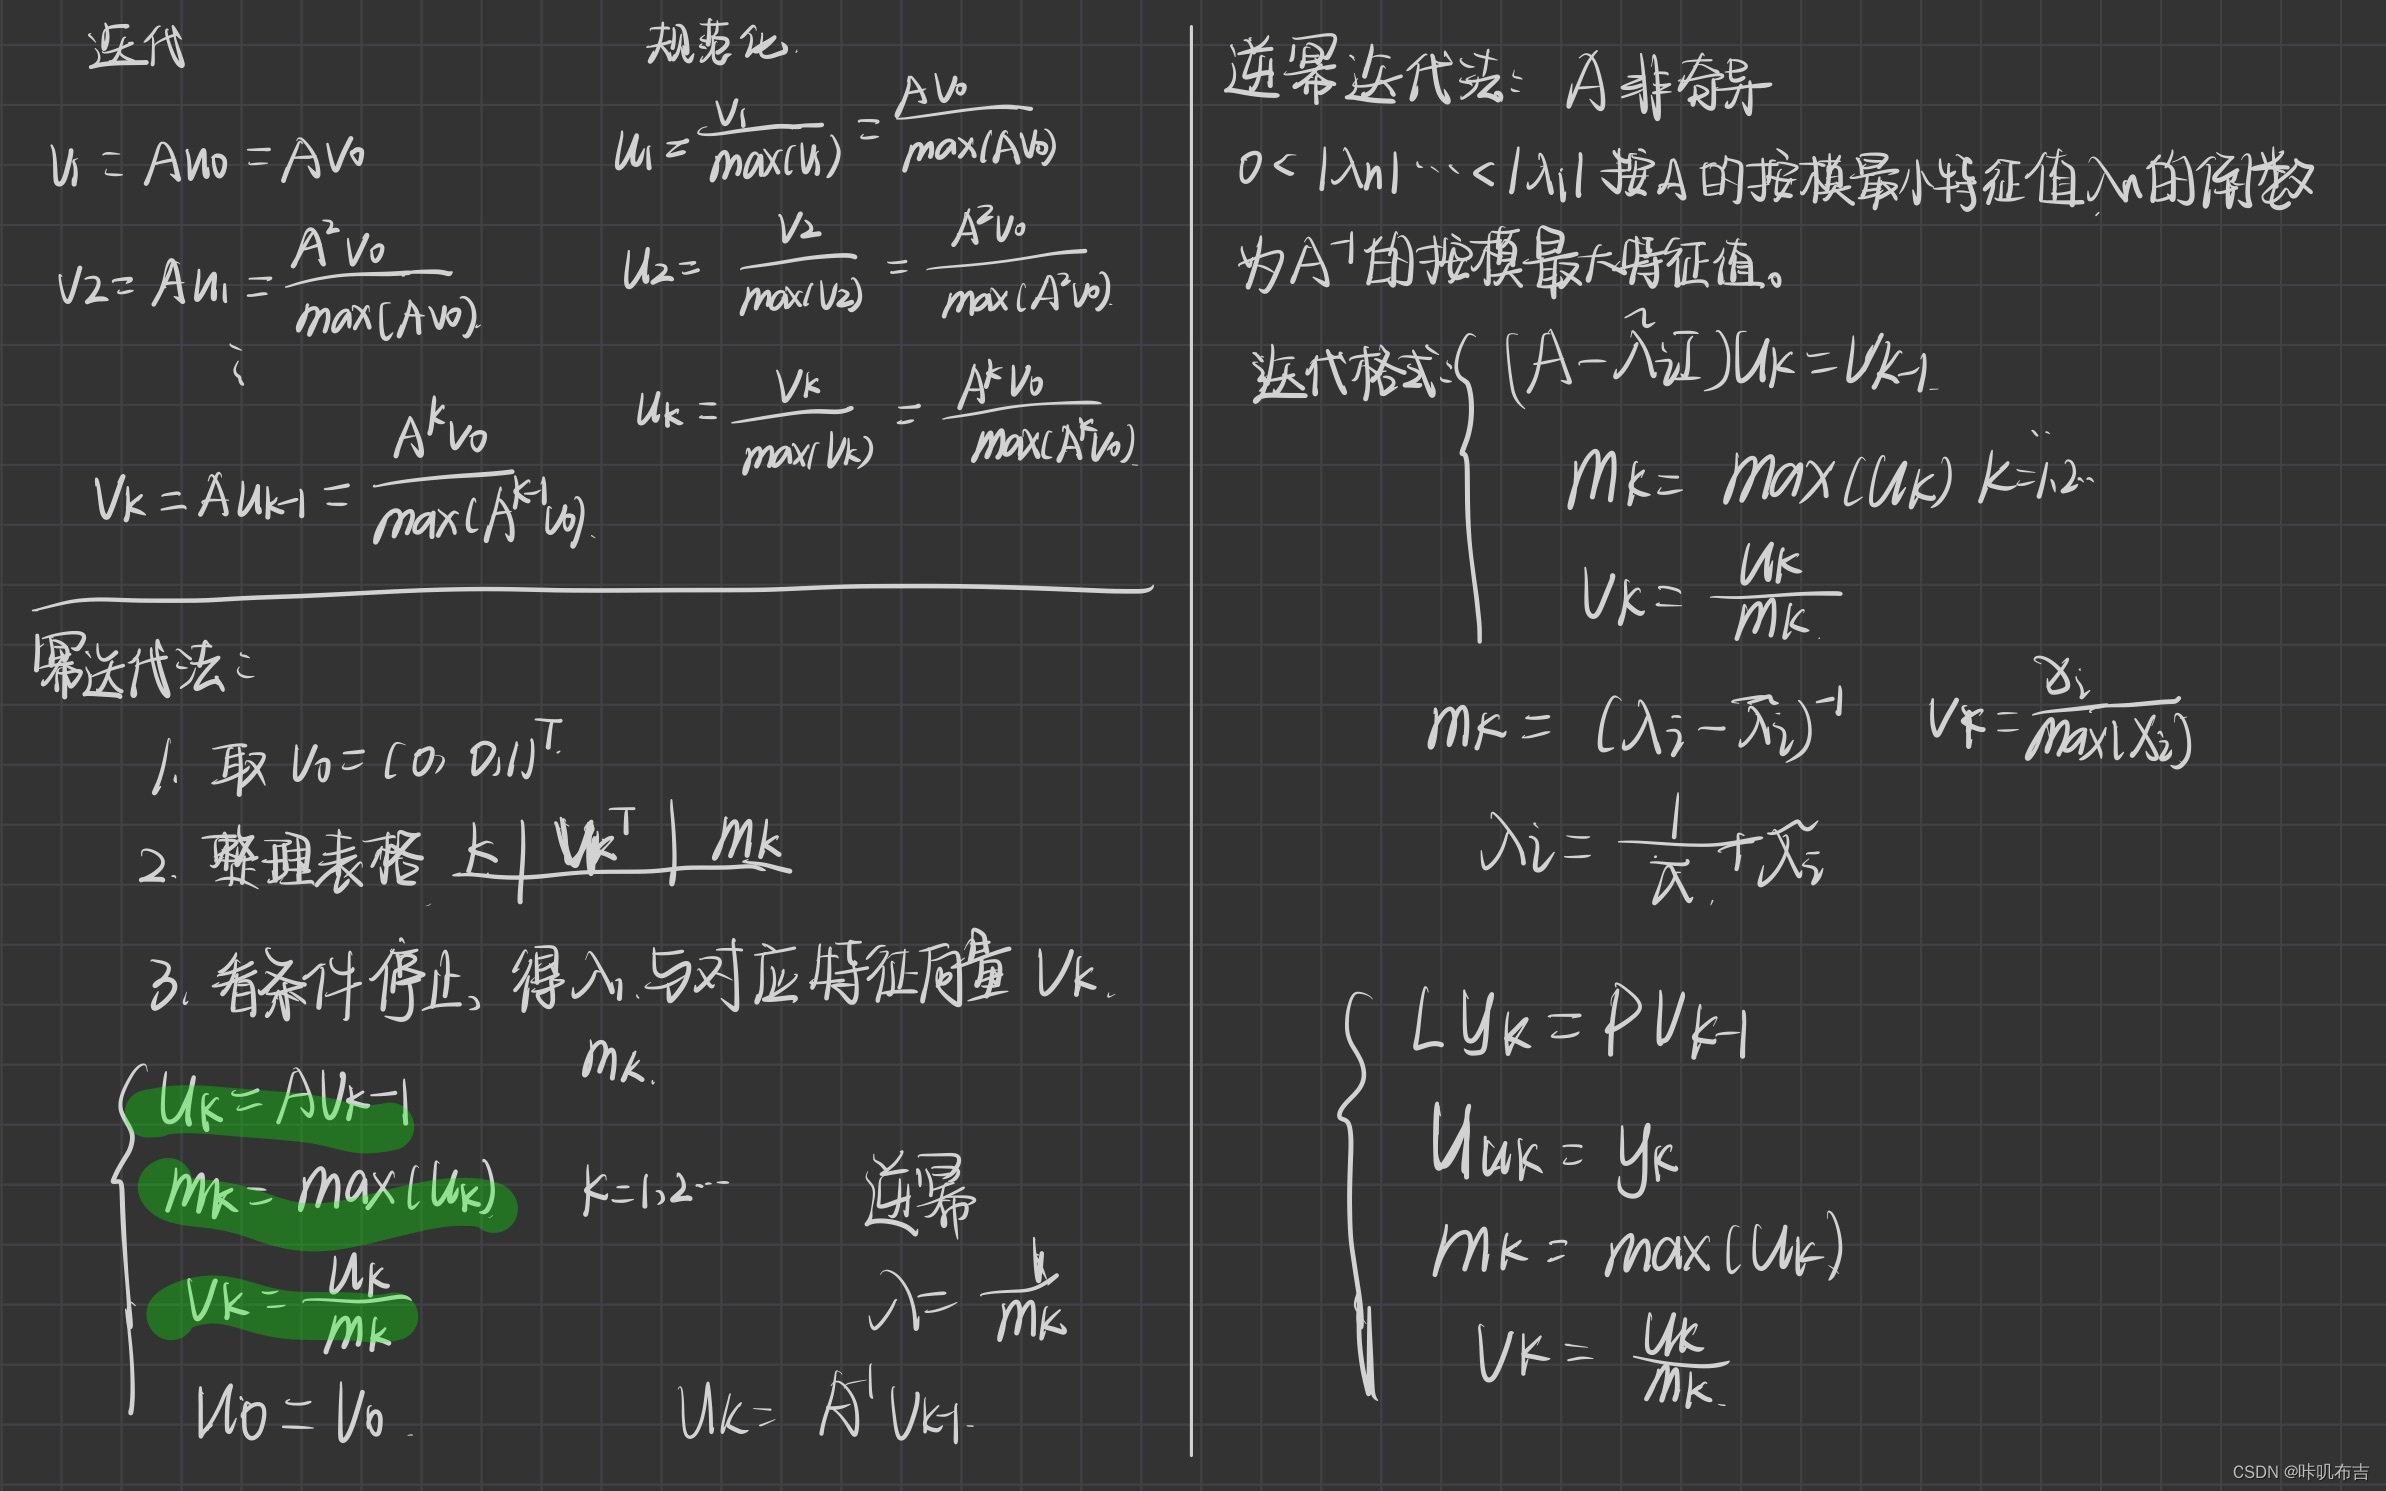 迭代
v₁ = Au₀ = Av₀
v₂ = Au₁ = A²v₀ / max(Av₀)
⋮
vₖ = Auₖ₋₁ = Aᵏv₀ / max(Aᵏ⁻¹v₀)
规范化
u₁ = v₁ / max(v₁) = Av₀ / max(Av₀)
u₂ = v₂ / max(v₂) = A²v₀ / max(A²v₀)
uₖ = vₖ / max(vₖ) = Aᵏv₀ / max(Aᵏv₀)
幂迭代法:
1. 取 v₀ = (0, 0, 1)ᵀ
2. 整理表格 k | vₖᵀ | mₖ
3. 看条件停止, 得λ₁与对应特征向量 vₖ.
mₖ.
uₖ = Avₖ₋₁
mₖ = max(uₖ) k=1,2…
vₖ = uₖ / mₖ
u₀ = v₀
逆幂
λ = 1 / mₖ
uₖ = A⁻¹vₖ₋₁
逆幂迭代法: A非奇异
0 < |λn| … < |λ₁| 按A的按模最小特征值λn的倒数
为A⁻¹的按模最大特征值。
迭代格式: (A − λ̃ᵢI)uₖ = vₖ₋₁
mₖ = max(uₖ) k=1,2…
vₖ = uₖ / mₖ
mₖ = (λᵢ − λ̃ᵢ)⁻¹ vₖ = xᵢ / max(xᵢ)
λᵢ = 1 / λ̄ + λ̃ᵢ
Lyₖ = Pvₖ₋₁
Uuₖ = yₖ
mₖ = max(uₖ)
vₖ = uₖ / mₖ
CSDN @咔叽布吉